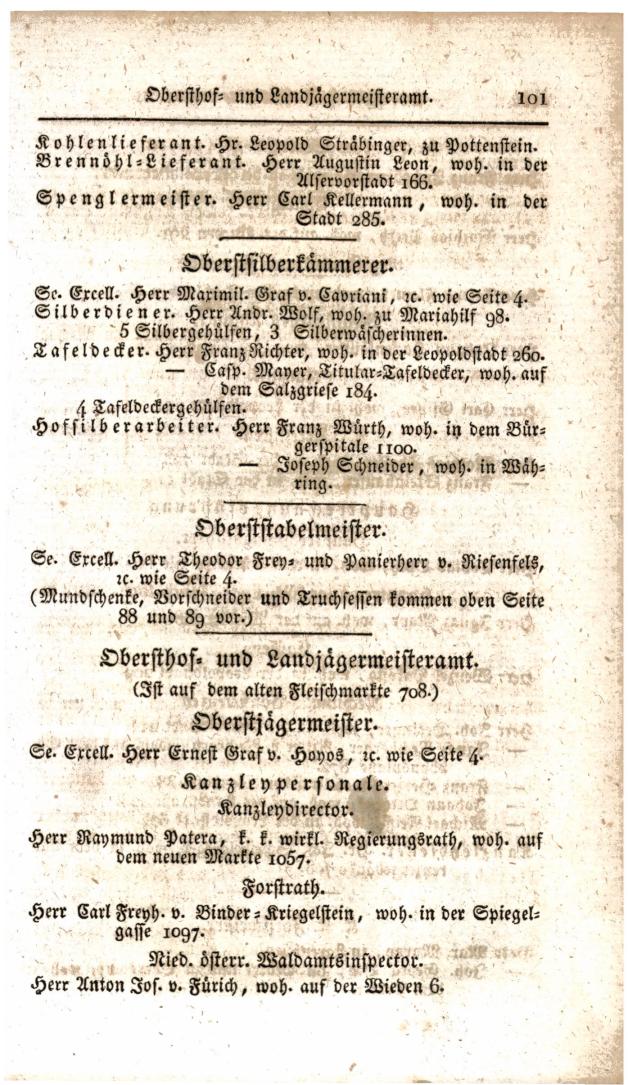 Obersthof- und Landjägermeisteramt. 101
Kohlenlieferant. Hr. Leopold Sträbinger, zu Pottenstein.
Brennöhl-Lieferant. Herr Augustin Leon, woh. in der
Alservorstadt 166.
Spenglermeister. Herr Carl Kellermann, woh. in der
Stadt 285.
Oberstsilberkämmerer.
Se. Excell. Herr Maximil. Graf v. Cavriani, ꝛc. wie Seite 4.
Silberdiener. Herr Andr. Wolf, woh. zu Mariahilf 98.
5 Silbergehülfen, 3 Silberwäscherinnen.
Tafeldecker. Herr Franz Richter, woh. in der Leopoldstadt 260.
— Casp. Mayer, Titular-Tafeldecker, woh. auf
dem Salzgriese 184.
4 Tafeldeckergehülfen.
Hofsilberarbeiter. Herr Franz Würth, woh. in dem Bür-
gerspitale 1100.
— Joseph Schneider, woh. in Wäh-
ring.
Oberststabelmeister.
Se. Excell. Herr Theodor Frey- und Panierherr v. Riesenfels,
ꝛc. wie Seite 4.
(Mundschenke, Vorschneider und Truchsessen kommen oben Seite
88 und 89 vor.)
Obersthof- und Landjägermeisteramt.
(Ist auf dem alten Fleischmarkte 708.)
Oberstjägermeister.
Se. Excell. Herr Ernest Graf v. Hoyos, ꝛc. wie Seite 4.
Kanzleypersonale.
Kanzleydirector.
Herr Raymund Patera, k. k. wirkl. Regierungsrath, woh. auf
dem neuen Markte 1057.
Forstrath.
Herr Carl Freyh. v. Binder-Kriegelstein, woh. in der Spiegel-
gasse 1097.
Nied. österr. Waldamtsinspector.
Herr Anton Jos. v. Fürich, woh. auf der Wieden 6.